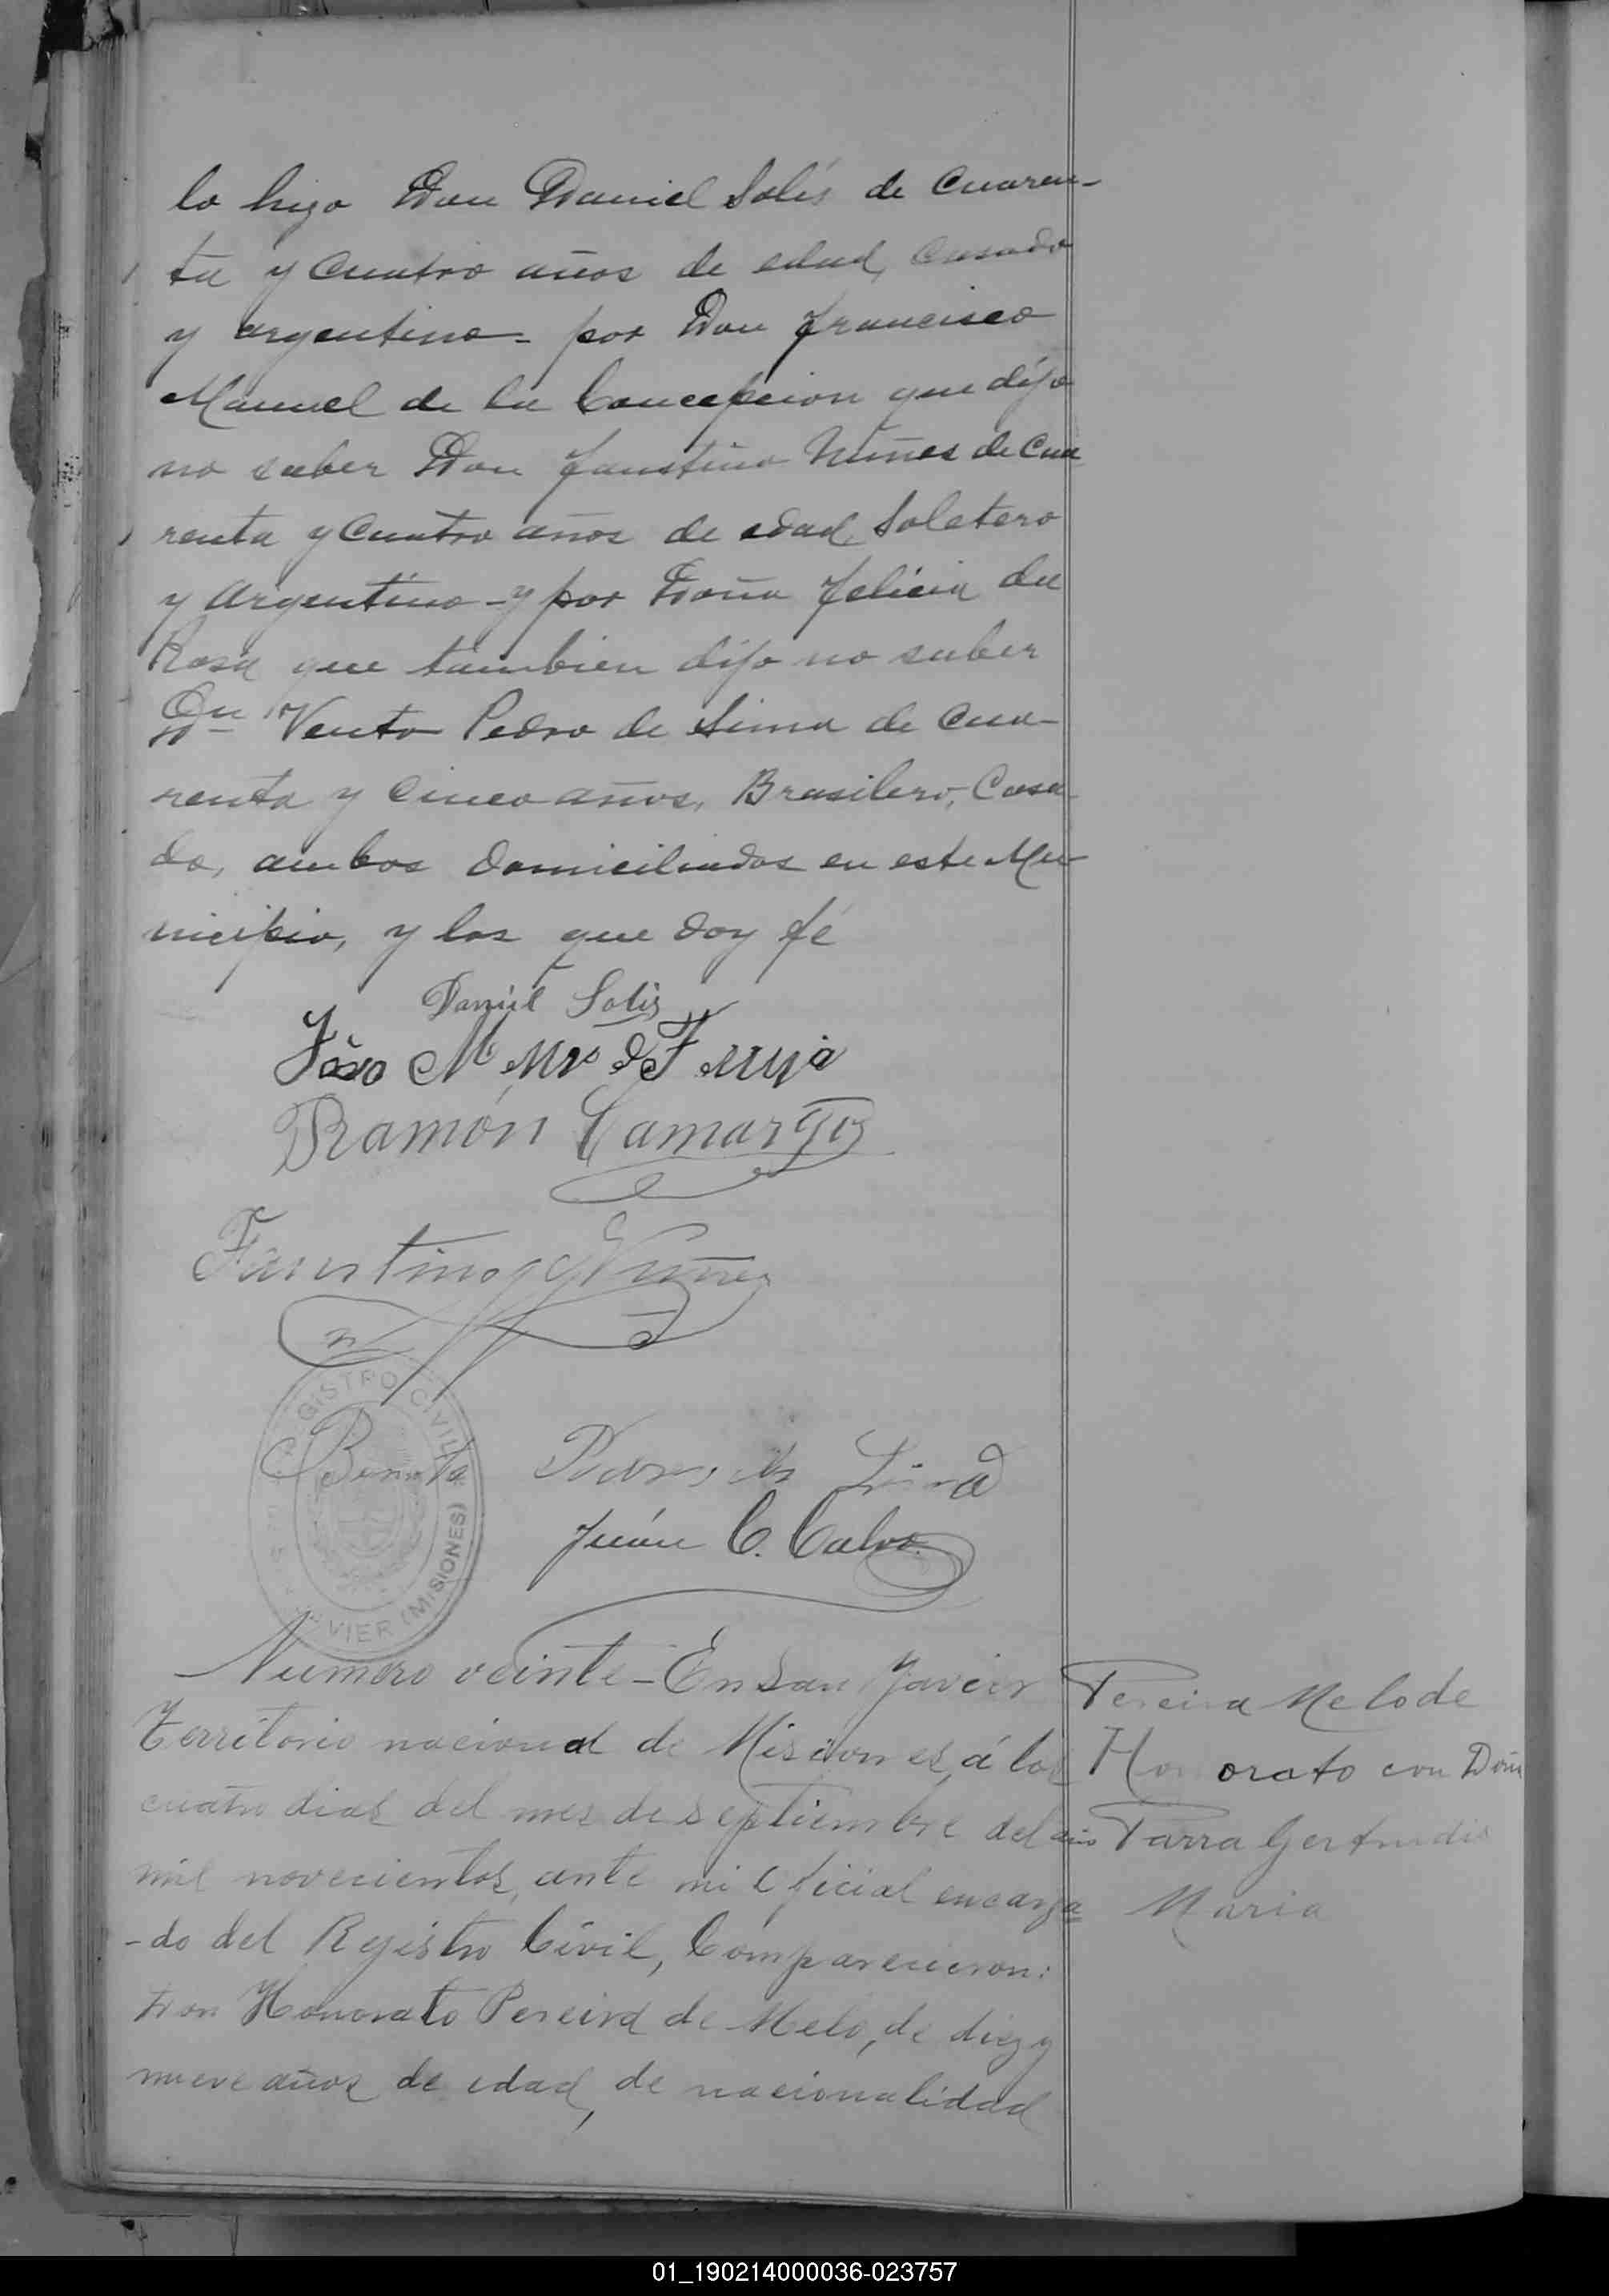 lo hizo Don Daniel Solís de cuaren-
ta y cuatro años de edad, casado
y argentino - por Don Francisco
Manuel de la Concepcion que dijo
no saber Don Faustino Nuñes de cua
renta y cuatro años de edad, Soletero
y Argentino - y por Doña Felicia da
Rosa que tambien dijo no saber
Dn Vento Pedro de Lima de cua-
renta y cinco años, Brasilero, Casa
do, ambos domiciliados en este Mu-
nicipio, y los que doy fé
Daniel Solis
João
Ramón Camargos
Faustino Nuñes
REGISTRO CIVIL
Bento Lima
(MISIONES)
Juán C. Calvo
VIER
Numero veinte - En San Javier
Territorio nacional de Misiones, á los
cuatro dias del mes de septiembre del año
mil novecientos, ante mi Oficial encarga
-do del Rejistro Civil, Comparecieron:
Don Honorato Pereira de Melo, de diez y
nueve años de edad, de nacionalidad
Pereira Melo de
Honorato con Doña
Parra Gertrudis
Maria
01_190214000036-023757